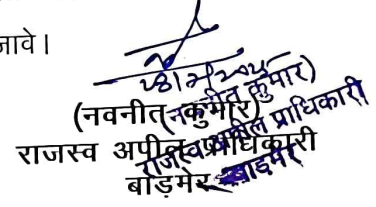 जावे।
(नवनीत कुमार)
राजस्व अपील प्राधिकारी
बाड़मेर
(नवनीत कुमार)
राजस्व अपील प्राधिकारी
बाड़मेर